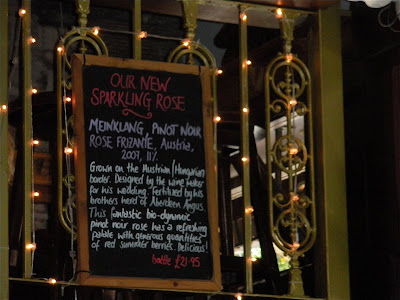 OUR NEW
SPARKLING ROSE
MEINKLANG, PINOT NOIR
ROSE FRIZANTE, Austria,
2007, 11%
Grown on the Austrian/Hungarian
border. Designed by the wine maker
for his wedding. Fertilized by his
brothers herd of Aberdeen Angus.
This fantastic bio-dynamic
pinot noir rose has a refreshing
palate with generous quantities
of red summer berries. Delicious!
bottle £21.95